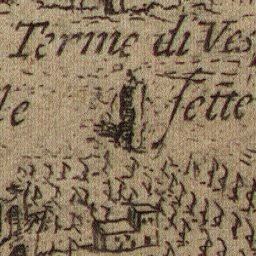 Terme di Ves
le sette